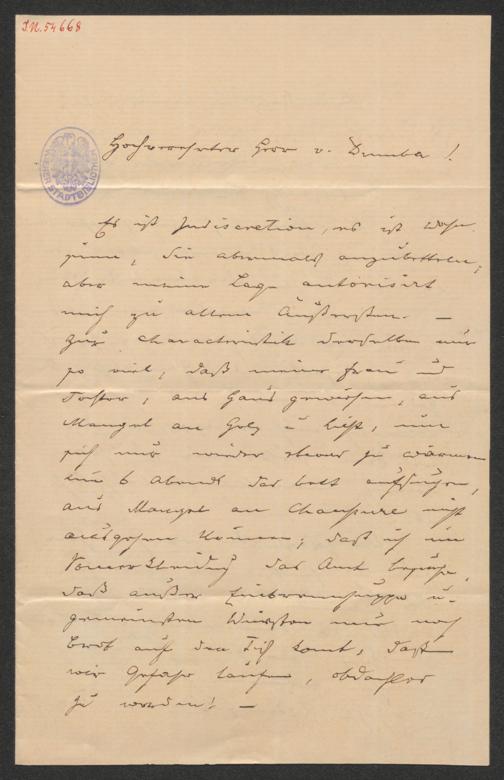 I.N. 54668
Hochverehrter Herr v. Dumba!
WIENER STADTBIBLIOTHEK
Es ist Indiscretion, es ist Wahn-
sinn, Sie abermals anzubetteln,
aber meine Lage autorisirt
mich zu allem Äußersten. —
Zur Characteristik derselben nur
so viel, daß meine Frau und
Tochter, aus Haus gewiesen, aus
Mangel an Holz u Licht, um
sich nur wieder etwas zu wärmen
um 6 Abends das Bett aufsuchen,
aus Mangel an Chaussure nicht
ausgehen können; daß ich im
Sommerkleid das Amt besuche,
daß außer Einbrennsuppe u.
gemeinsten Würsten nur noch
Brot auf den Tisch komt, daß
wir Gefahr laufen, obdachlos
zu werden! —